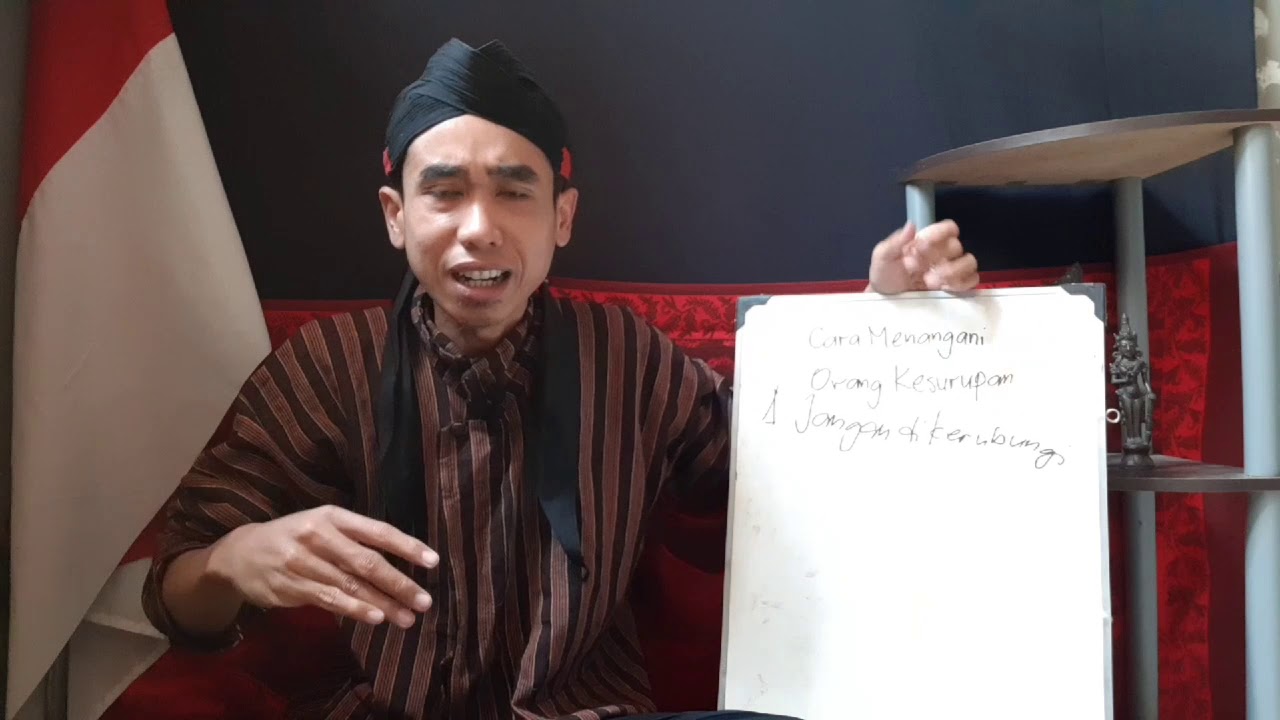 Cara Menangani
Orang Kesurupan
1 Jangan dikerubungi